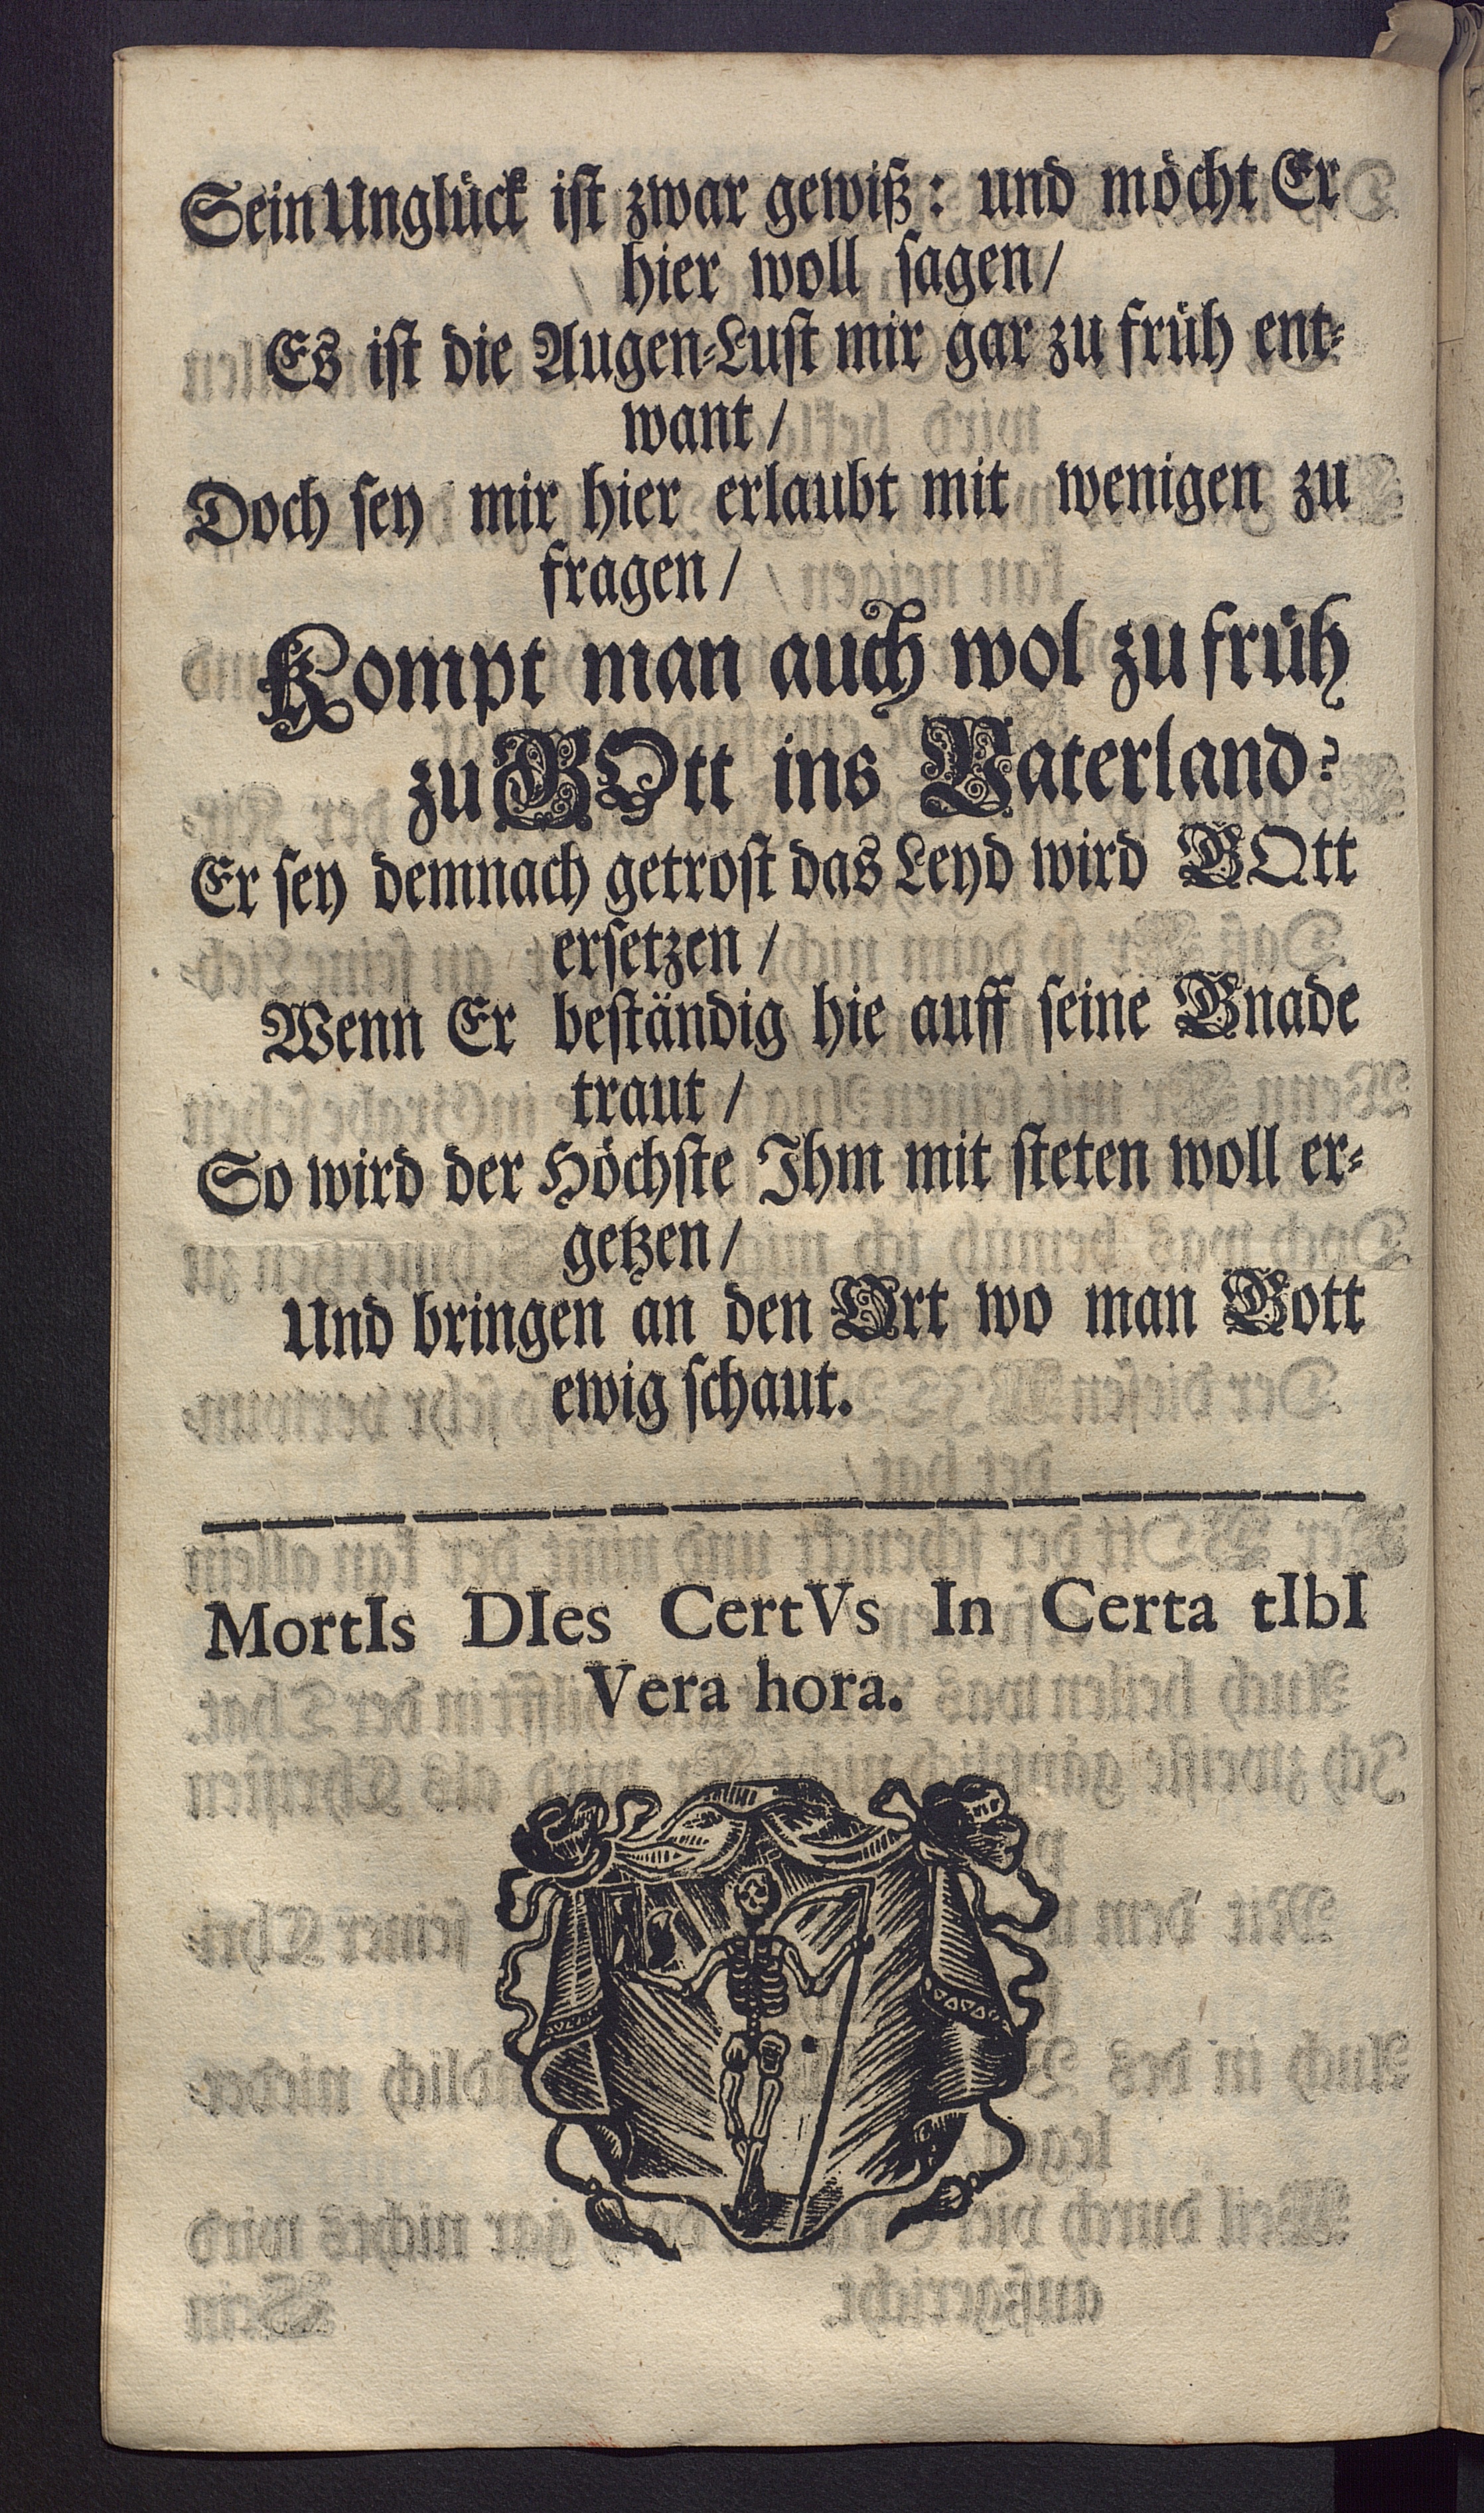 Sein Unglück ist zwar gewiß: und möcht Er
hier woll sagen/
Es ist die Augen-Lust mir gar zu früh ent-
want/
Doch sey mir hier erlaubt mit wenigen zu
fragen/
Kompt man auch wol zu früh
zu GOtt ins Vaterland?
Er sey demnach getrost das Leyd wird GOtt
ersetzen/
Wenn Er beständig hie auff seine Gnade
traut/
So wird der Höchste Ihm mit steten woll er-
getzen/
Und bringen an den Ort wo man Gott
ewig schaut.
MortIs DIes CertVs In Certa tIbI
Vera hora.